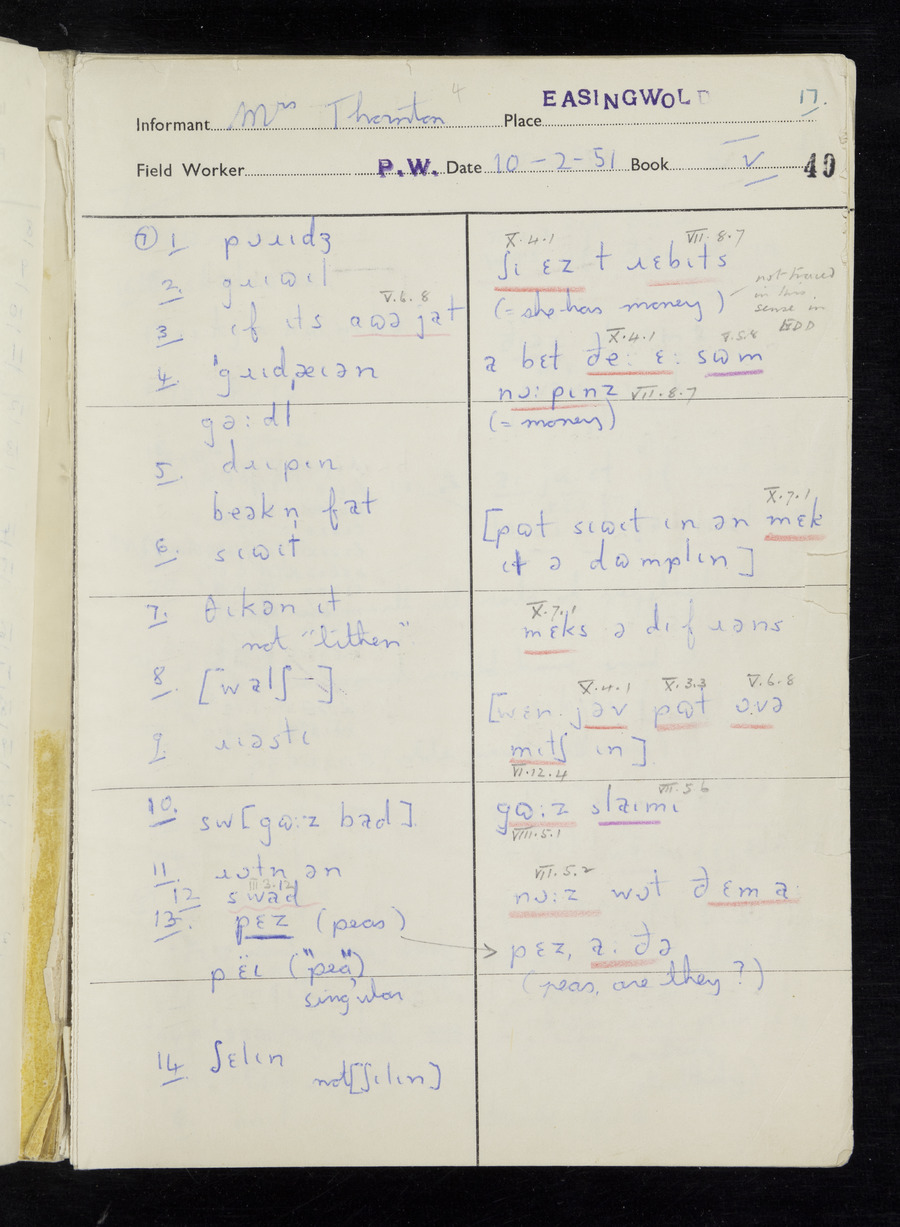 EASINGWOLD 17.
Informant Mrs Thornton 4 Place
Field Worker P.W. Date 10-2-51 Book V 49
⑦ 1. pʊɹɪdʒ
2. gɹɪʊɪl
V.6.8
3. ɪf ɪts aʊə jat
4. gɪɹdæɪən
gəːdl
5. dɹɪpɪn
beəkn̩ fat
6. sɪʊɪt
7. θɪkən ɪt
not "lithen"
8. [walʃ-]
9. ɹɪəstɪ
10. sw[gʊːz bad]
11. ɹɒtn ən
III.3.12
12 swad
13. pɛz (peas)
pëɪ ("pea")
singular
14. ʃɛlɪn
not [ʃɪlɪn]
X.4.1 VII.8.7
ʃɪ ɛz t ɹɛbɪts
(= she has money)
not traced
in this
sense in
EDD
X.4.1 V.5.8
a bet ðeː ɛː sʊm
nɒːpɪnz VII.8.7
(= money)
X.7.1
[pʊt sɪʊɪt ɪn ən mɛk
ɪt ə dʊmplɪn]
X.7.1
mɛks ə dɪfɹəns
X.4.1 X.3.3 V.6.8
[wɛn jəv pʊt ɒvə
mɪtʃ ɪn]
VI.12.4
VII.5.6
gʊːz slaɪmɪ
VIII.5.1
VII.5.2
nɒːz wɒt ðɛm a
pɛz, aː ðə
(peas, are they?)